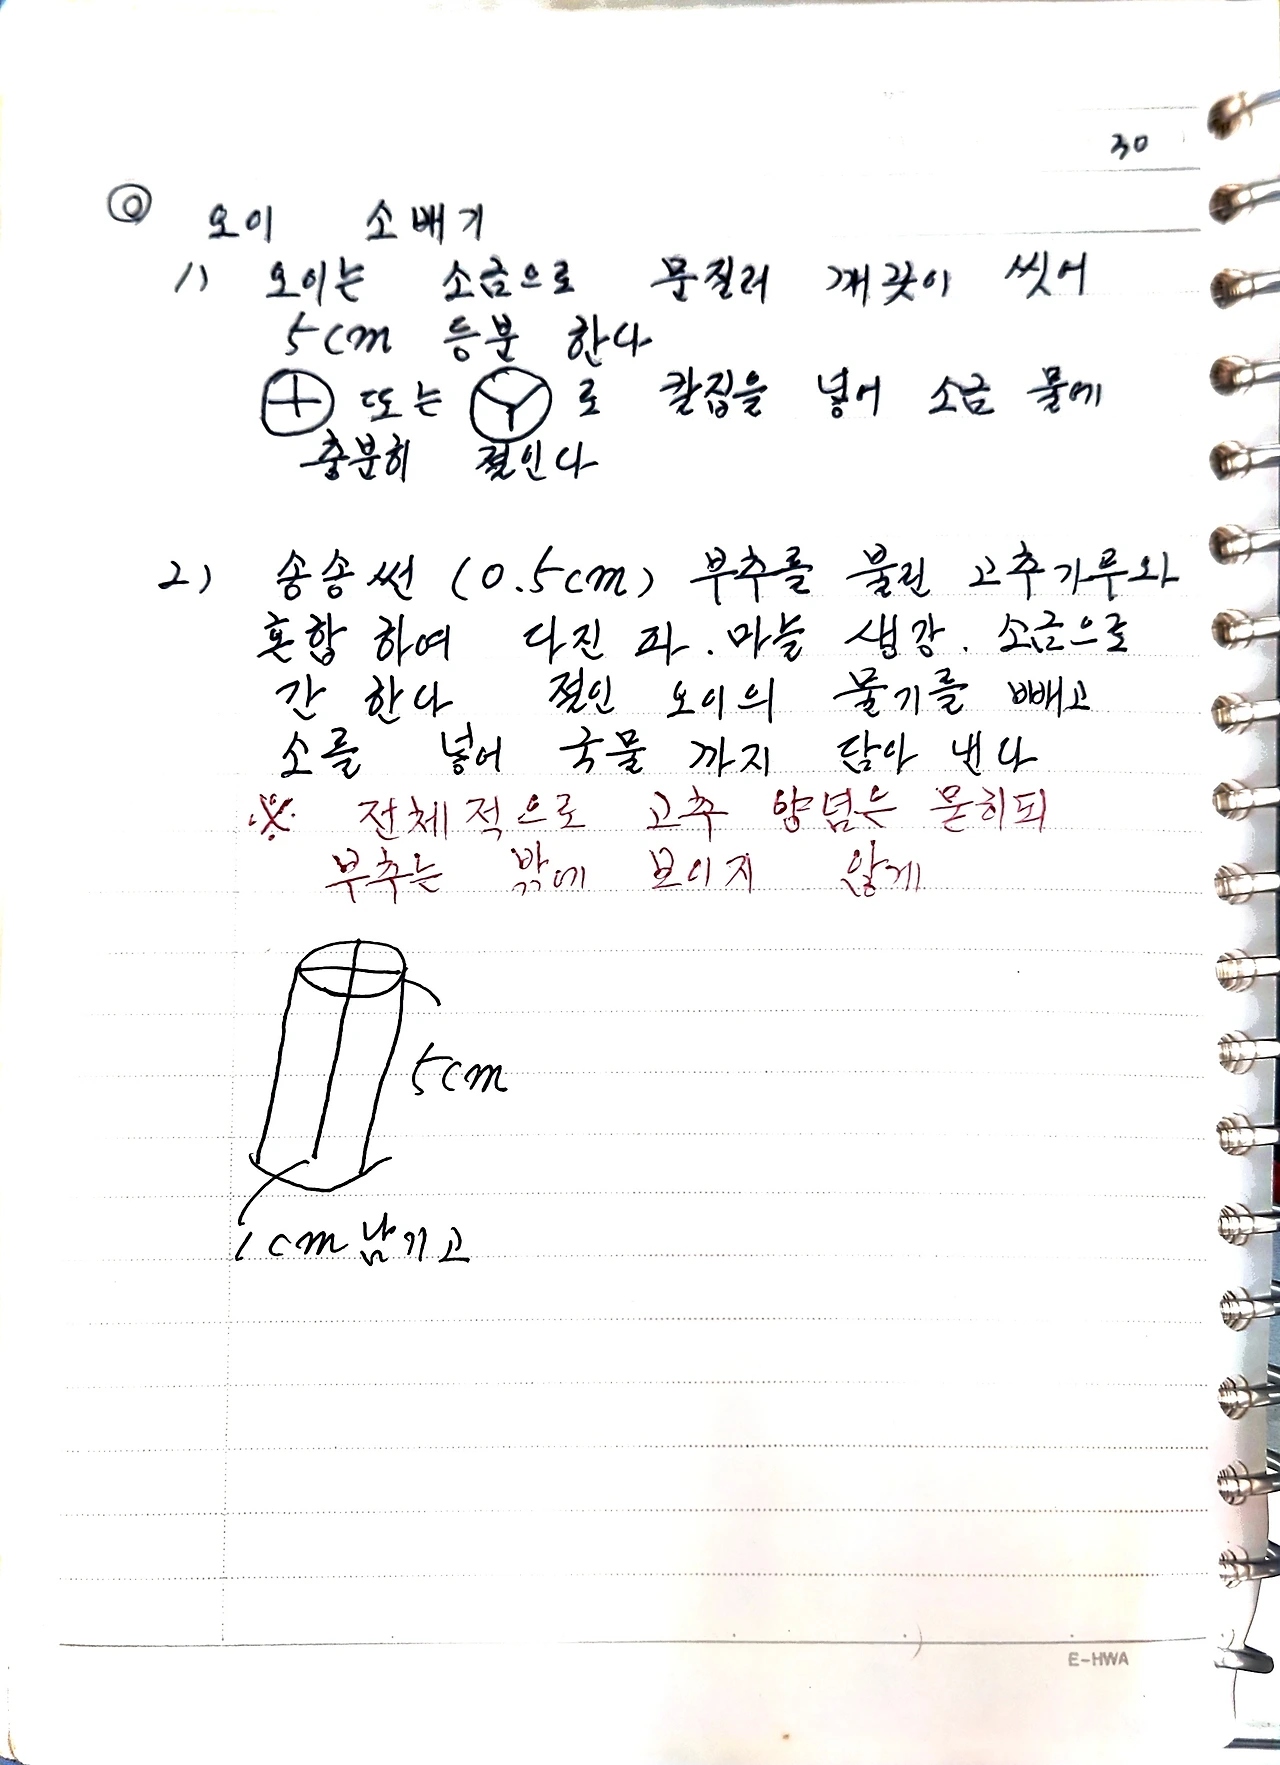 30
◎ 오이 소배기
1) 오이는 소금으로 문질러 깨끗이 씻어
5cm 등분 한다
⊕ 또는 Ⓨ로 칼집을 넣어 소금 물에
충분히 절인다
2) 송송썬 (0.5cm) 부추를 불린 고추가루와
혼합 하여 다진 파. 마늘 생강. 소금으로
간 한다 절인 오이의 물기를 빼고
소를 넣어 국물 까지 담아 낸다
※ 전체적으로 고추 양념은 묻히되
부추는 밖에 보이지 않게
5cm
1cm 남기고
E-HWA